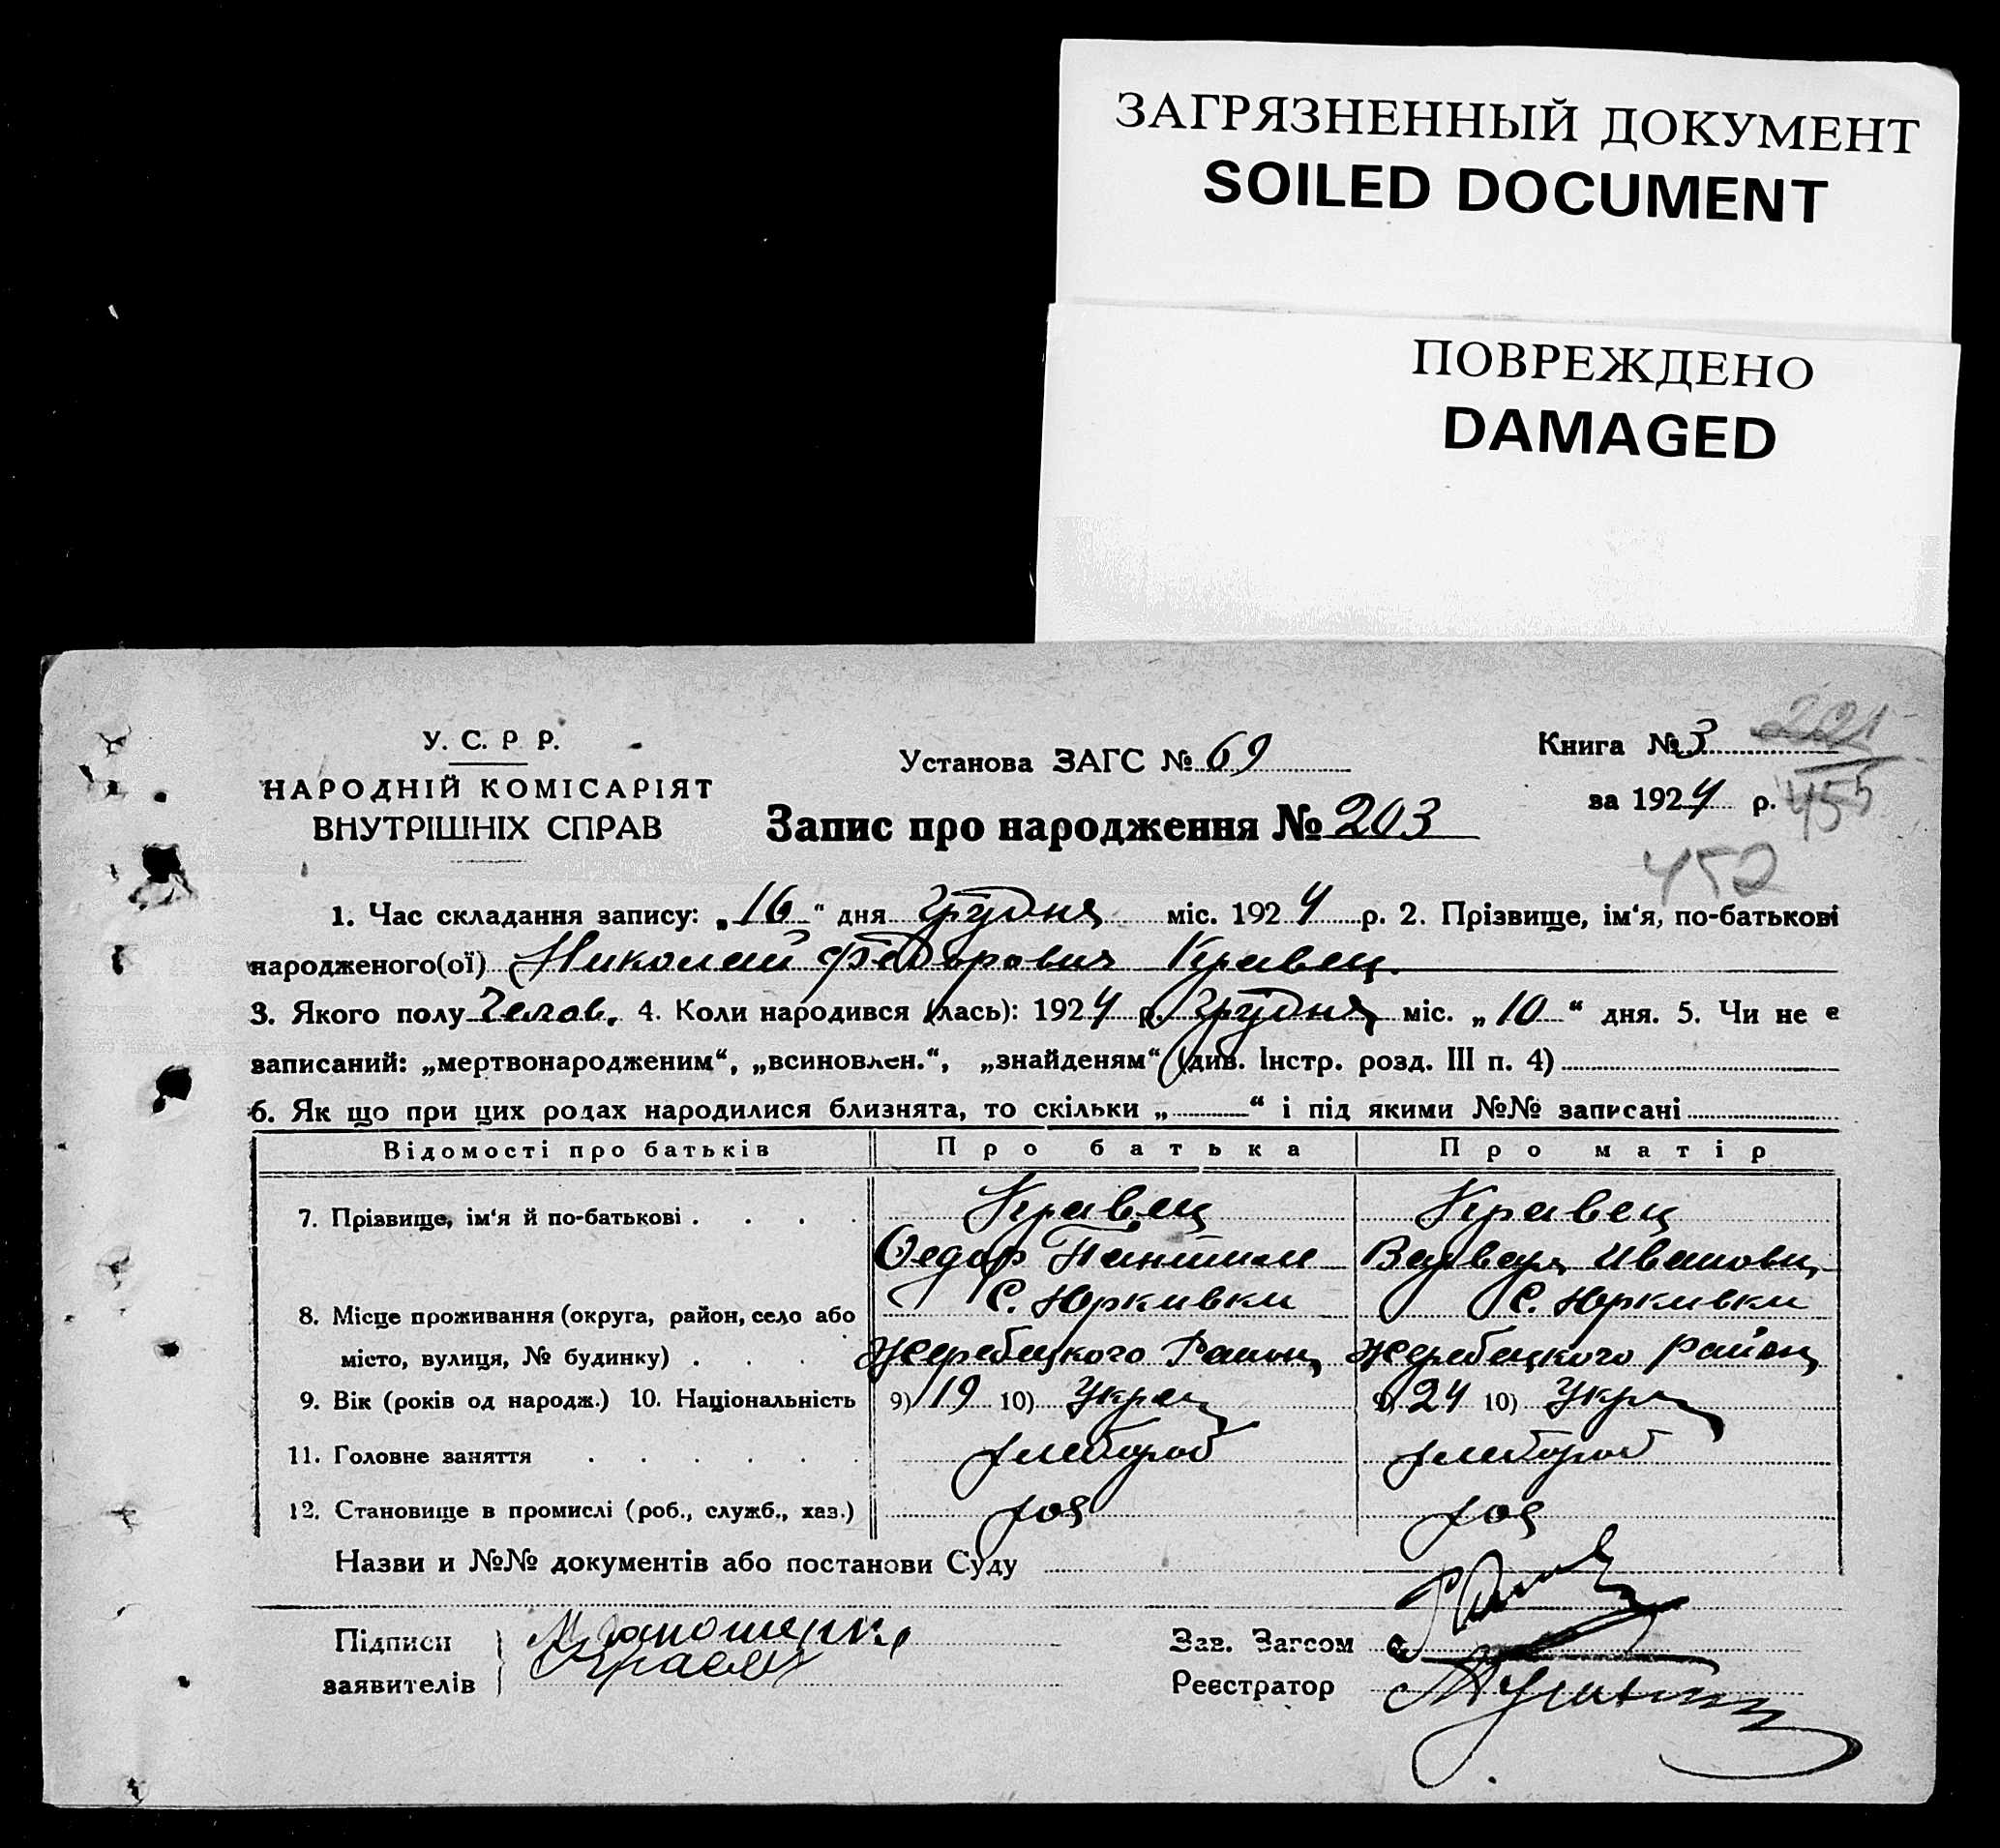 ЗАГРЯЗНЕННЫЙ ДОКУМЕНТ
SOILED DOCUMENT
ПОВРЕЖДЕНО
DAMAGED
У. С. Р Р.
НАРОДНІЙ КОМІСАРІЯТ
ВНУТРІШНІХ СПРАВ
Установа ЗАГС № 69
Запис про народження № 203
Книга № 3
221
за 1924 р.
455
452
1. Час складання запису: „16“ дня Грудня міс. 1924 р. 2. Прізвище, ім‘я, по-батькові
народженого(ої) Николай Федорович Кравец.
3. Якого полу Челов. 4. Коли народився (лась): 1924 р. Грудня міс. „10“ дня. 5. Чи не є
записаний: „мертвонародженим“, „всиновлен.“, „знайденям“ (див. Інстр. розд. III п. 4)
6. Як що при цих родах народилися близнята, то скільки „ “ і під якими №№ записані
Відомості про батьків Про батька Про матір
7. Прізвище, ім‘я й по-батькові . . . . Кравец Кравец
Федор Варвара Иванови
С. Юркивки С. Юркивки
8. Місце проживання (округа, район, село або
місто, вулиця, № будинку) . . . Жеребецкого Району Жеребецкого Району
9. Вік (років од народж.) 10. Національність 9) 19 10) Укра 9) 24 10) Укр
11. Головне заняття . . . . . . хлебороб хлебороб
12. Становище в промислі (роб., служб., хаз.) хоз хоз
Назви и №№ документів або постанови Суду
Підписи
заявителів
Зав. Загсом
Реєстратор